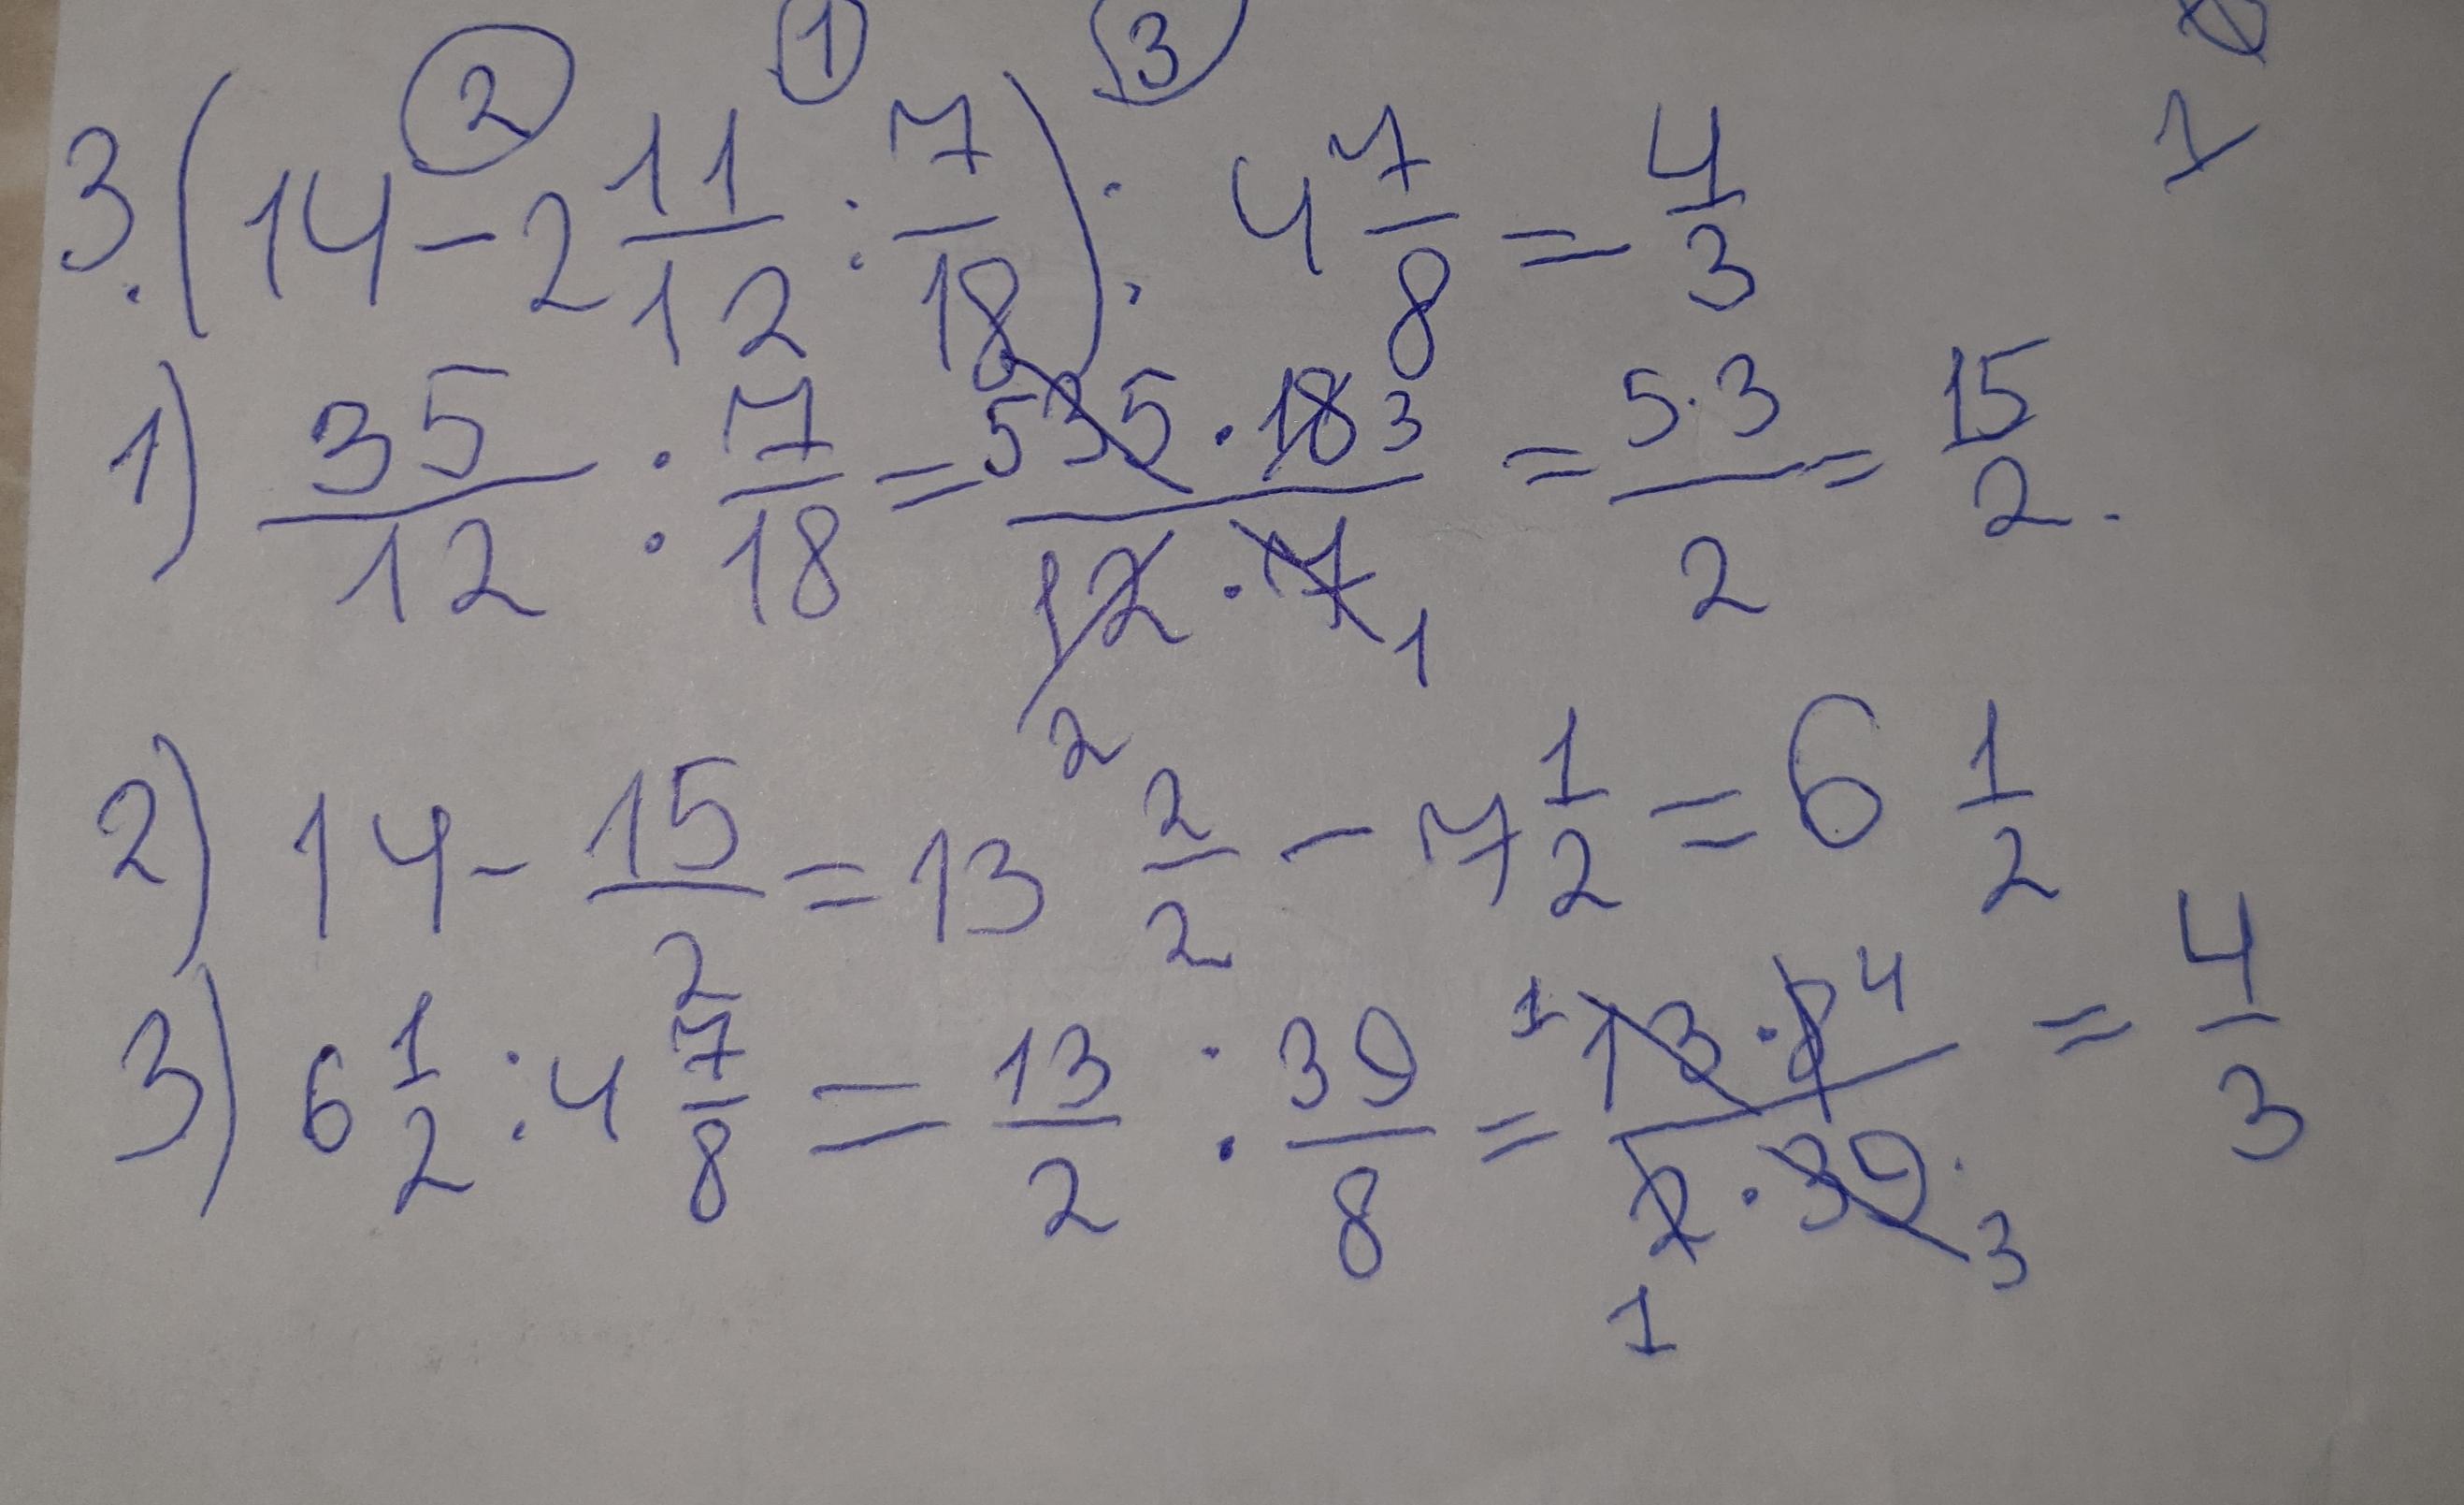 ② ① ③
3. (14 - 2 11/12 : 7/18) : 4 7/8 = 4/3
1) 35/12 : 7/18 = 5 35 · 18 3 / 12 · 7 = 5·3/2 = 15/2.
2 1
2) 14 - 15/2 = 13 2/2 - 7 1/2 = 6 1/2
3) 6 1/2 : 4 7/8 = 13/2 : 39/8 = 1 13 · 8 4 / 2 · 39 3 = 4/3
1